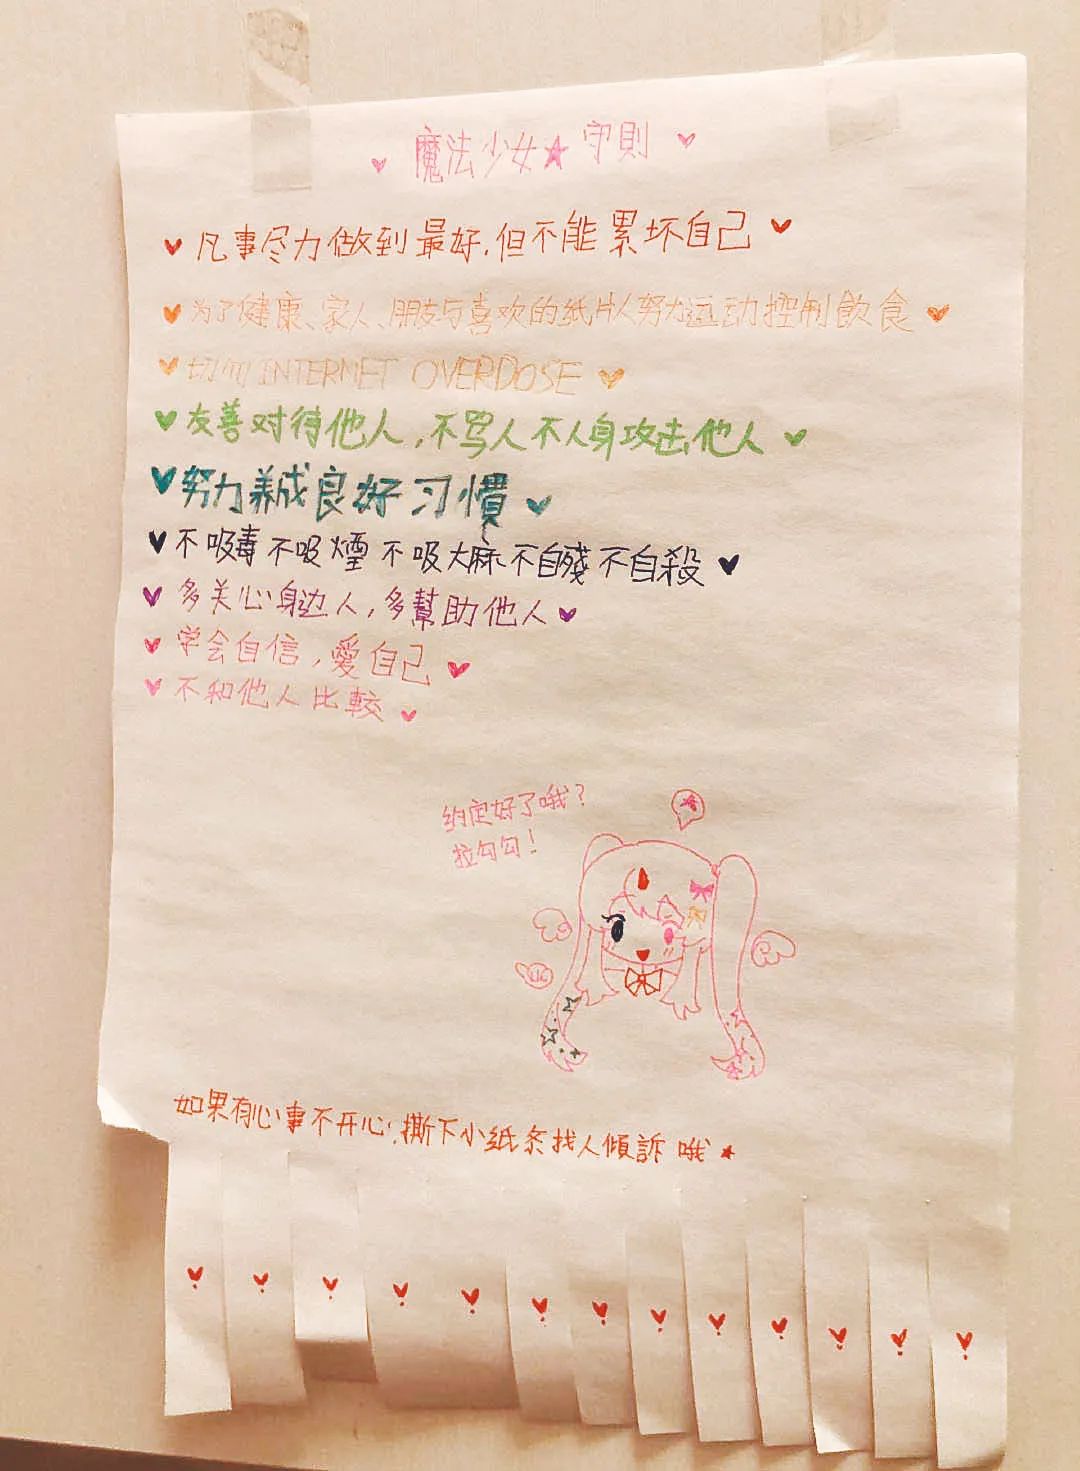 魔法少女★守則
凡事尽力做到最好,但不能累坏自己
为了健康、家人、朋友与喜欢的纸片人努力运动控制飲食
切勿INTERNET OVERDOSE
友善对待他人,不骂人不人身攻击他人
努力養成良好习慣
不吸毒不吸煙不吸大麻不自殘不自殺
多关心身边人,多幫助他人
学会自信,愛自己
不和他人比較
约定好了哦?
拉勾勾!
如果有心事不开心,撕下小纸条找人傾訴哦★